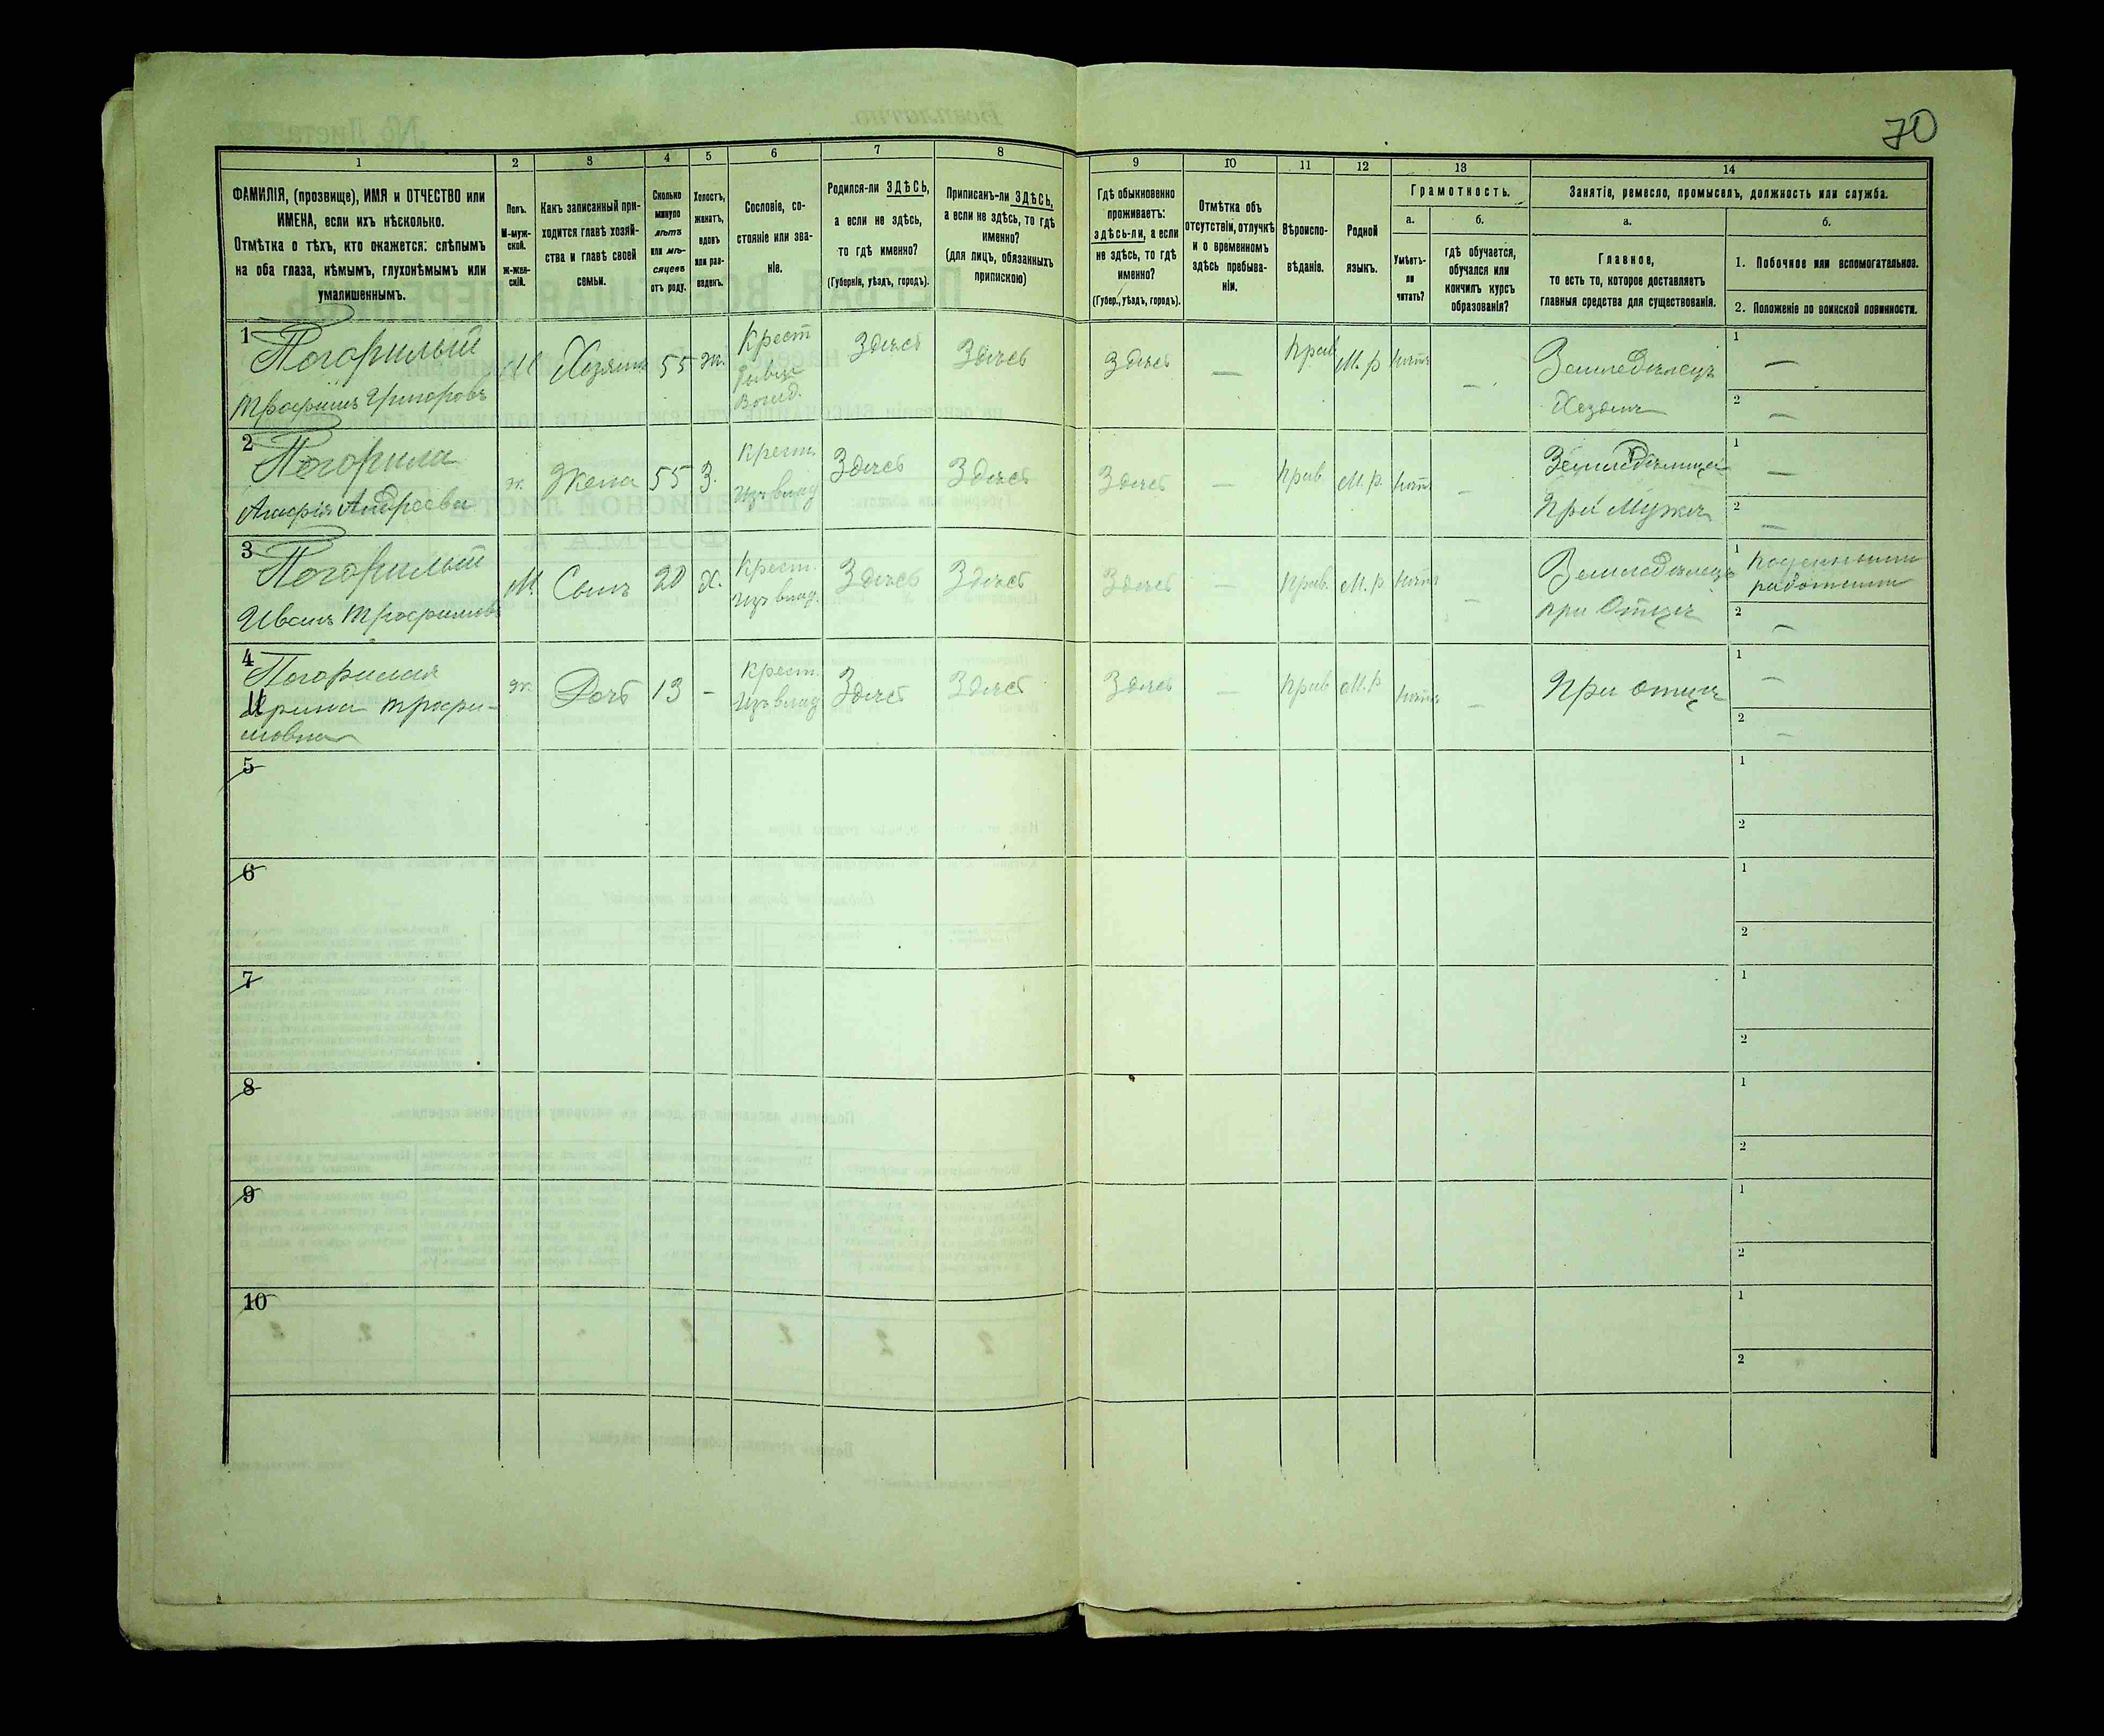 70
1 2 3 4 5 6 7 8 9 10 11 12 13 14
ФАМИЛІЯ, (прозвище), ИМЯ и ОТЧЕСТВО или
ИМЕНА, если ихъ нѣсколько.
Отмѣтка о тѣхъ, кто окажется: слѣпымъ
на оба глаза, нѣмымъ, глухонѣмымъ или
умалишеннымъ.
Полъ.
М-муж-
ской.
ж-жен-
скій.
Какъ записанный при-
ходится главѣ хозяй-
ства и главѣ своей
семьи.
Сколько
минуло
лѣтъ
или мѣ-
сяцевъ
отъ роду.
Холостъ,
женатъ,
вдовъ
или раз-
веденъ.
Сословіе, со-
стояніе или зва-
ніе.
Родился-ли ЗДѢСЬ,
а если не здѣсь,
то гдѣ именно?
(Губернія, уѣздъ, городъ).
Приписанъ-ли ЗДѢСЬ,
а если не здѣсь, то гдѣ
именно?
(для лицъ, обязанныхъ
припискою)
Гдѣ обыкновенно
проживаетъ:
здѣсь-ли, а если
не здѣсь, то гдѣ
именно?
(Губер., уѣздъ, городъ).
Отмѣтка объ
отсутствіи, отлучкѣ
и о временномъ
здѣсь пребыва-
ніи.
Вѣроиспо-
вѣданіе.
Родной
языкъ.
Грамотность.
а.
Умѣетъ-
ли
читать?
б.
гдѣ обучается,
обучался или
кончилъ курсъ
образованія?
Занятіе, ремесло, промыселъ, должность или служба.
а.
Главное,
то есть то, которое доставляетъ
главныя средства для существованія.
б.
1. Побочное или вспомогательное.
2. Положеніе по воинской повинности.
1
Погорилый
Трофимъ Григоровъ
М Хозяинъ 55 ж.
Крест
Здѣсь Здѣсь Здѣсь — Прав М. р нѣтъ —
Земледѣлецъ
Хозяинъ
1 —
2 —
2
Погорила
Андреева
ж. Жена 55 З.
Крест.
Изъ влад
Здѣсь Здѣсь Здѣсь — Прав М. р. нѣтъ —
При Мужѣ
1 —
2 —
3
Погорилый
Иванъ Трофимовъ
М. Сынъ 20 х.
Крест.
Изъ влад.
Здѣсь Здѣсь Здѣсь — Прав. М. р нѣтъ —
Земледѣлецъ
при Отцѣ
1 поденный
2 —
4
Погорилая
Ирина Трофи-
мовна
ж. Дочь 13 —
Крест.
Изъ влад
Здѣсь Здѣсь Здѣсь — Прав М. р нѣтъ —
При отцѣ
1 —
2 —
5
1
2
6
1
2
7
1
2
8
1
2
9
1
2
10
1
2